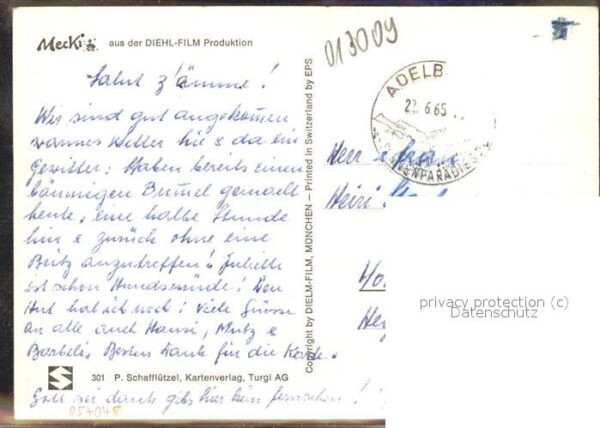 Mecki aus der DIEHL-FILM Produktion
013009
Salut z'ämme!
Wir sind gut angekommen
warmes Wetter hie & da ein
Gewitter: Haben bereits einen
bäumigen Bummel gemacht
heute, eine halbe Stunde
hin & zurück ohne eine
Beiz anzutreffen!
ist schon Hundsmüde! Den
Hut hab ich noch! Viele Grüsse
an alle auch Hansi, Mutz &
Barbeli. Besten Dank für die Kerze.
301 P. Schafflützel, Kartenverlag, Turgi AG
Gott sei dank gibts hier kein Fernsehen!
057048
Copyright by DIELM-FILM, MÜNCHEN — Printed in Switzerland by EPS
ADELB
22.6.65
Herr & Frau
Heiri
privacy protection (c)
Datenschutz